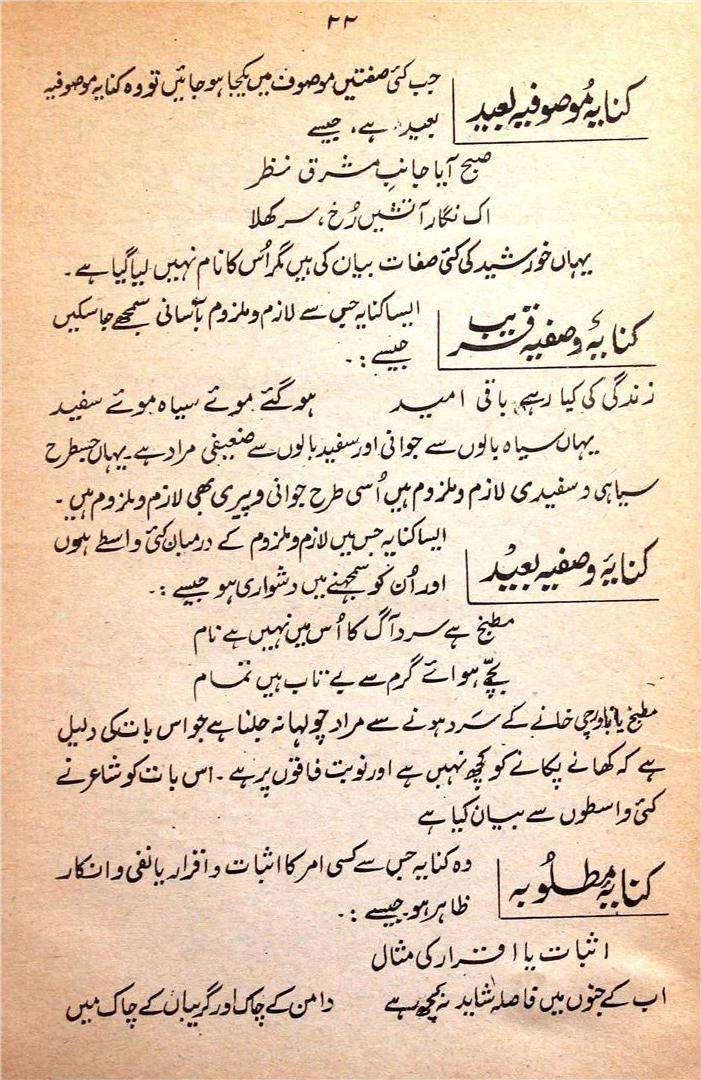 ۲۲
کنایہ موصوفیہ بعید
جب کئی صفتیں موصوف میں یکجا ہو جائیں تو وہ کنایہ موصوفیہ
بعید ہے، جیسے
صبح آیا جانبِ مشرق نظر
اک نگار آتشیں رُخ، سر کھلا
یہاں خورشید کی کئی صفات بیان کی ہیں مگر اُس کا نام نہیں لیا گیا ہے۔
کنایۂ وصفیہ قریب
ایسا کنایہ جس سے لازم و ملزوم بآسانی سمجھے جا سکیں
جیسے :۔
زندگی کی کیا رہے باقی امید ہو گئے موئے سیاہ موئے سفید
یہاں سیاہ بالوں سے جوانی اور سفید بالوں سے ضعیفی مراد ہے۔ یہاں جسطرح
سیاہی و سفیدی لازم و ملزوم ہیں اُسی طرح جوانی و پیری بھی لازم و ملزوم ہیں۔
کنایۂ وصفیہ بعید
ایسا کنایہ جس میں لازم و ملزوم کے درمیان کئی واسطے ہوں
اور اُن کو سمجھنے میں دشواری ہو جیسے :۔
مطبخ ہے سرد آگ کا اُس میں نہیں ہے نام
بچّے ہوائے گرم سے بے تاب ہیں تمام
مطبخ یا باورچی خانے کے سَرد ہونے سے مراد چولہا نہ جلنا ہے جو اس بات کی دلیل
ہے کہ کھانے پکانے کو کچھ نہیں ہے اور نوبت فاقوں پر ہے۔ اس بات کو شاعر نے
کئی واسطوں سے بیان کیا ہے
کنایۂ مطلوبہ
وہ کنایہ جس سے کسی امر کا اثبات و اقرار یا نفی و انکار
ظاہر ہو۔ جیسے :۔
اثبات یا اقرار کی مثال
اب کے جنوں میں فاصلہ شاید نہ کچھ رہے دامن کے چاک اور گریباں کے چاک میں